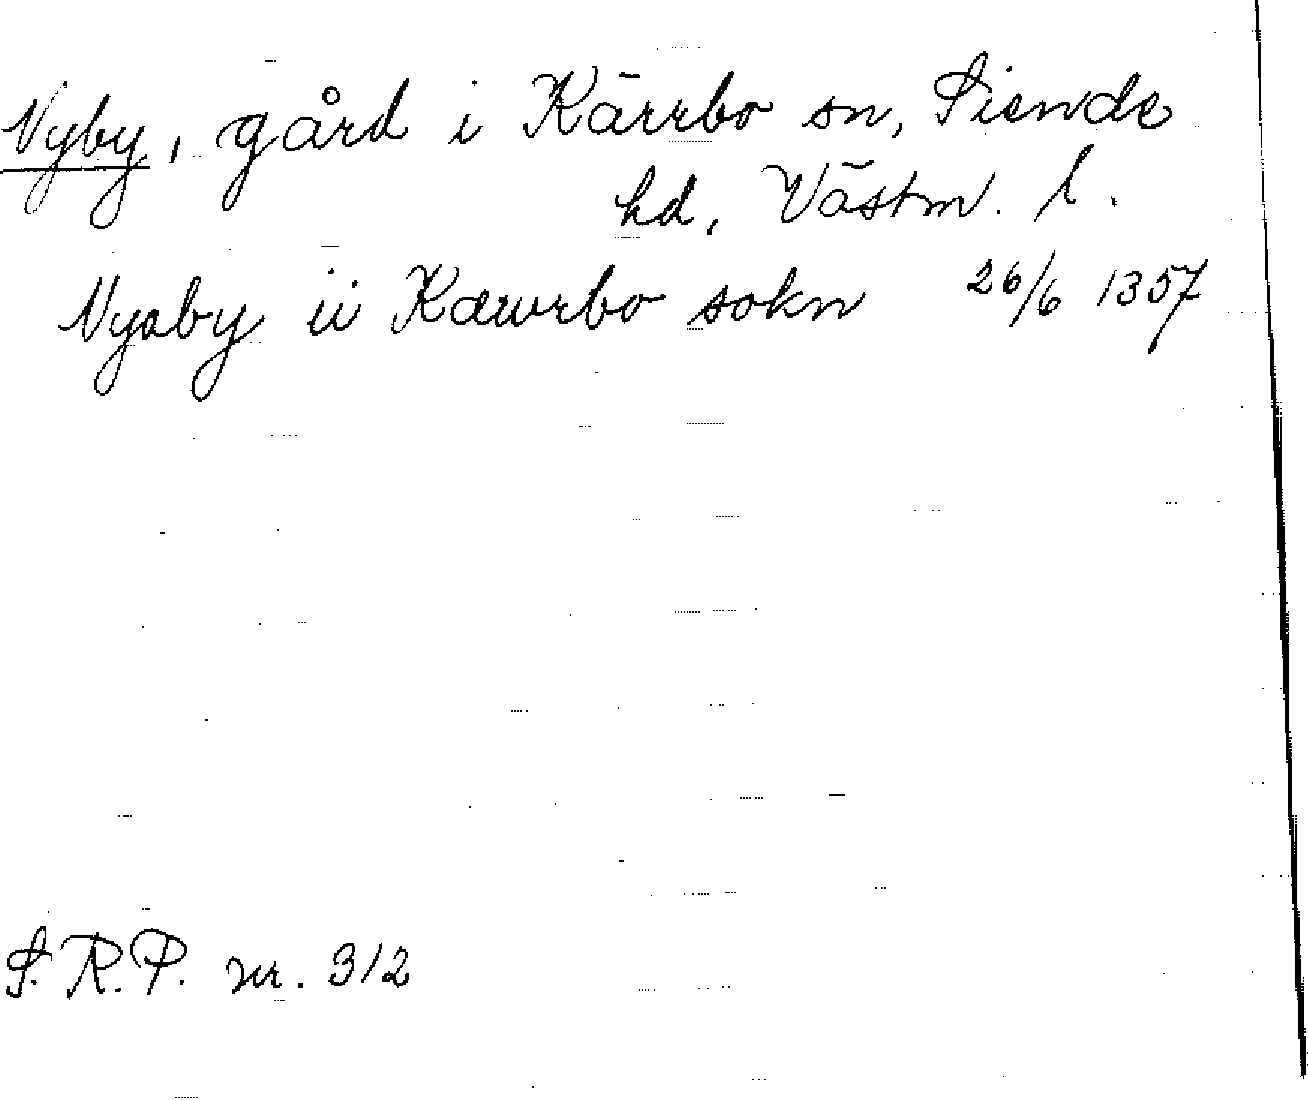 Nyby, gård i Kärrbo sn, Siende
hd, Västm. l.
Nyaby ii Kæwrbo sokn 26/6 1357
S.R.P. nr. 312